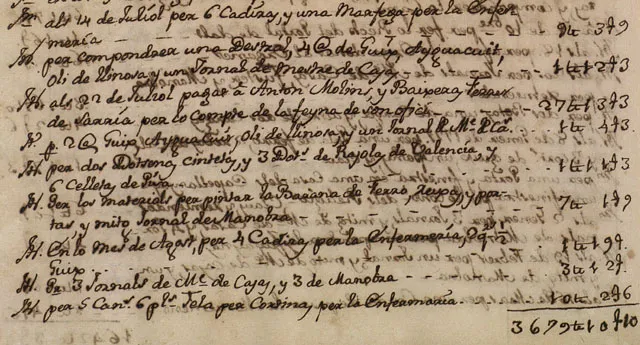 als 14 de Juliol per 6 Cadiras, y una Marfega per la Enfer-
meria 9 ₶ 3 ș 9
per compondrer una Destral, 4 @ de Guix, Ayguacuit,
Oli de llinosa y un Jornal de Mestre de Casas 1 ₶ 12 ș 3
als 22 de Juliol pagar à Anton Molins, y Ferrer
de Sarria, per lo Compte de la feyna de son ofici 37 ₶ 13 ș 3
p. 2 @ Guix, Ayguacuit, Oli de llinosa, y un Jornal 1 ₶ 4 ș 3
per dos cintes, y 3 Dotz. de Rajola de Valencia, y
6 Celletas de Pisa 1 ₶ 1 ș 3
Per los materials per pintar la Barana de Ferro, y por-
tas y mitg Jornal de Manobra 7 ₶ 1 ș 9
En lo Mes de Agost, per 4 Cadiras, per la Enfermeria,
Guix 1 ₶ 19 ș
3 Jornals de Me. de Casas, y 3 de Manobra 3 ₶ 12 ș
per 5 Can. 6 pls. Tela per Cortina, per la Enfermaria. 10 ₶ 2 ș 6
3679 ₶ 10 ș 10